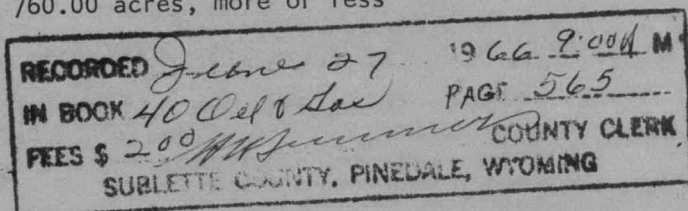 760.00 acres, more or less
RECORDED June 27 1966 9:00A M
IN BOOK 40 Oil & Gas PAGE 565
FEES $ 2.00 COUNTY CLERK
SUBLETTE COUNTY, PINEDALE, WYOMING